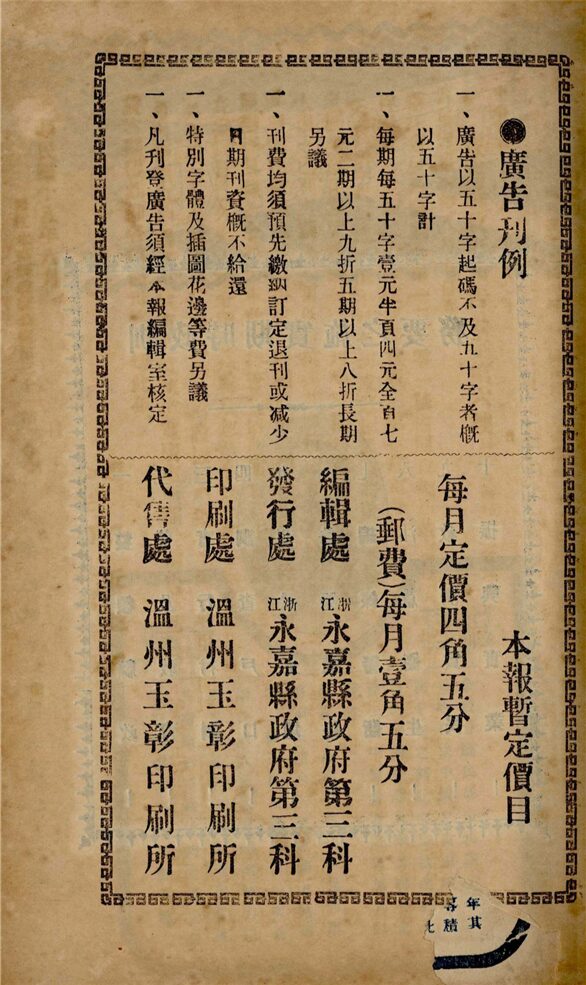 ●廣告刋例
一、廣告以五十字起碼不及五十字者概
以五十字計
一、每期每五十字壹元半頁四元全頁七
元二期以上九折五期以上八折長期
另議
一、刊費均須預先繳納訂定退刊或减少
日期刊資概不給還
一、特別字體及插圖花邊等費另議
一、凡刊登廣告須經本報編輯室核定
本報暫定價目
每月定價四角五分
(郵費)每月壹角五分
編輯處 浙江永嘉縣政府第三科
發行處 浙江永嘉縣政府第三科
印刷處 溫州玉彰印刷所
代售處 溫州玉彰印刷所
年其
積
北